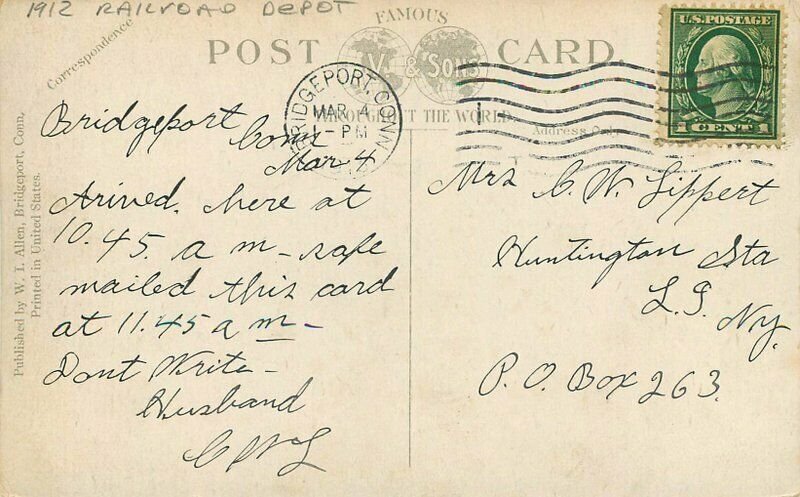 1912 RAILROAD DEPOT
FAMOUS
POST CARD.
V. & Sons
THROUGHOUT THE WORLD
Correspondence
Address Only
U.S. POSTAGE
1 CENT 1
BRIDGEPORT, CONN.
MAR 4
1 - PM
Published by W. I. Allen, Bridgeport, Conn.
Printed in United States.
Bridgeport
Conn
Mar 4
Arived. here at
10.45. a m - safe
mailed this card
at 11.45 a m -
Dont Write -
Husband
C W L
Mrs C. W. Lippert
Huntington Sta
L. I.
NY.
P. O. Box 263.